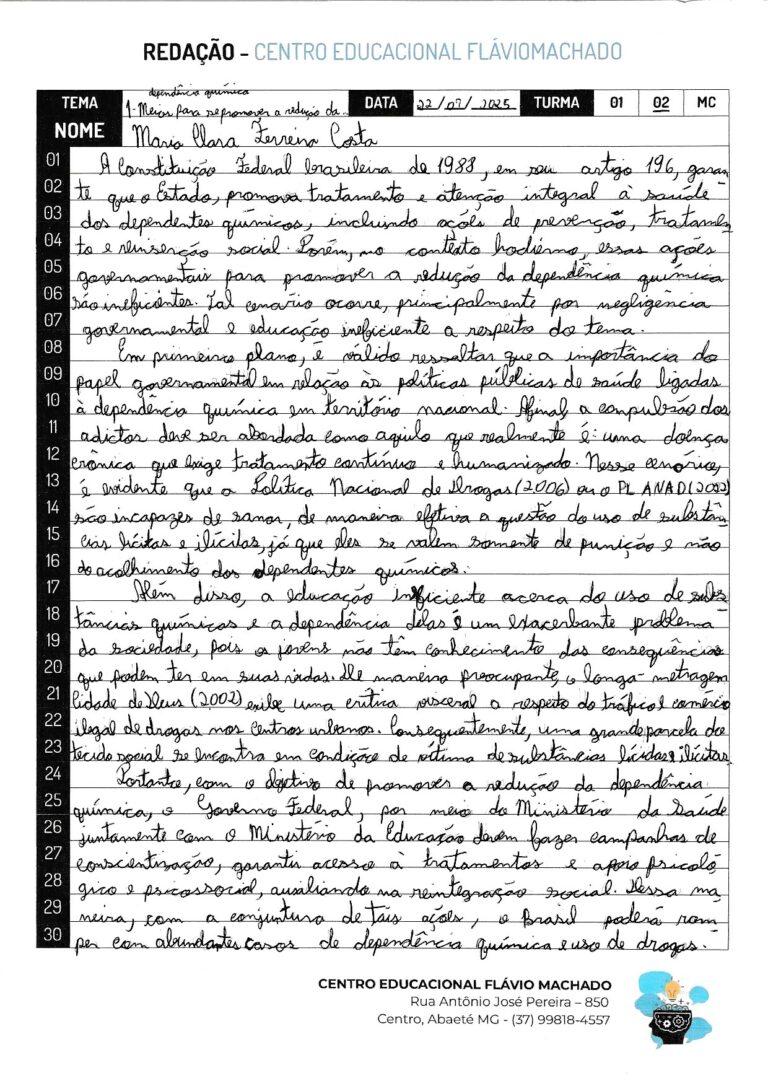 REDAÇÃO - CENTRO EDUCACIONAL FLÁVIOMACHADO
dependência química
TEMA 1- Meios para se promover a redução da... DATA 22/07/2025 TURMA 01 02 MC
NOME Maria Clara Ferreira Costa
01 A Constituição Federal brasileira de 1988, em seu artigo 196, garan-
02 te que o Estado, promova tratamento e atenção integral à saúde
03 dos dependentes químicos, incluindo ações de prevenção, tratamen-
04 to e reinserção social. Porém, no contexto hodierno, essas ações
05 governamentais para promover a redução da dependência química
06 são ineficientes. Tal cenário ocorre, principalmente por negligência
07 governamental e educação ineficiente a respeito do tema.
08 Em primeiro plano, é válido ressaltar que a importância do
09 papel governamental em relação às políticas públicas de saúde ligadas
10 à dependência química em território nacional. Afinal, a compulsão dos
11 adictos deve ser abordada como aquilo que realmente é: uma doença
12 crônica que exige tratamento contínuo e humanizado. Nesse cenário,
13 é evidente que a Política Nacional de Drogas (2006) ou o PLANAD (2022)
14 são incapazes de sanar, de maneira efetiva a questão do uso de substân-
15 cias lícitas e ilícitas, já que eles se valem somente de punição e não
16 do acolhimento dos dependentes químicos.
17 Além disso, a educação ineficiente acerca do uso de subs-
18 tâncias químicas e a dependência delas é um exacerbante problema
19 da sociedade, pois os jovens não têm conhecimento das consequências
20 que podem ter em suas vidas. De maneira preocupante, o longa-metragem
21 Cidade de Deus (2002) exibe uma crítica visceral a respeito do tráfico e comércio
22 ilegal de drogas nos centros urbanos. Consequentemente, uma grande parcela do
23 tecido social se encontra em condição de vítima de substâncias lícidas e ilícitas.
24 Portanto, com o objetivo de promover a redução da dependência
25 química, o Governo Federal, por meio do Ministério da Saúde
26 juntamente com o Ministério da Educação devem fazer campanhas de
27 conscientização, garantir acesso à tratamentos e apoio psicoló-
28 gico e psicossocial, auxiliando na reintegração social. Dessa ma-
29 neira, com a conjuntura de tais ações, o Brasil poderá rom-
30 per com abundantes casos de dependência química e uso de drogas.
CENTRO EDUCACIONAL FLÁVIO MACHADO
Rua Antônio José Pereira – 850
Centro, Abaeté MG - (37) 99818-4557